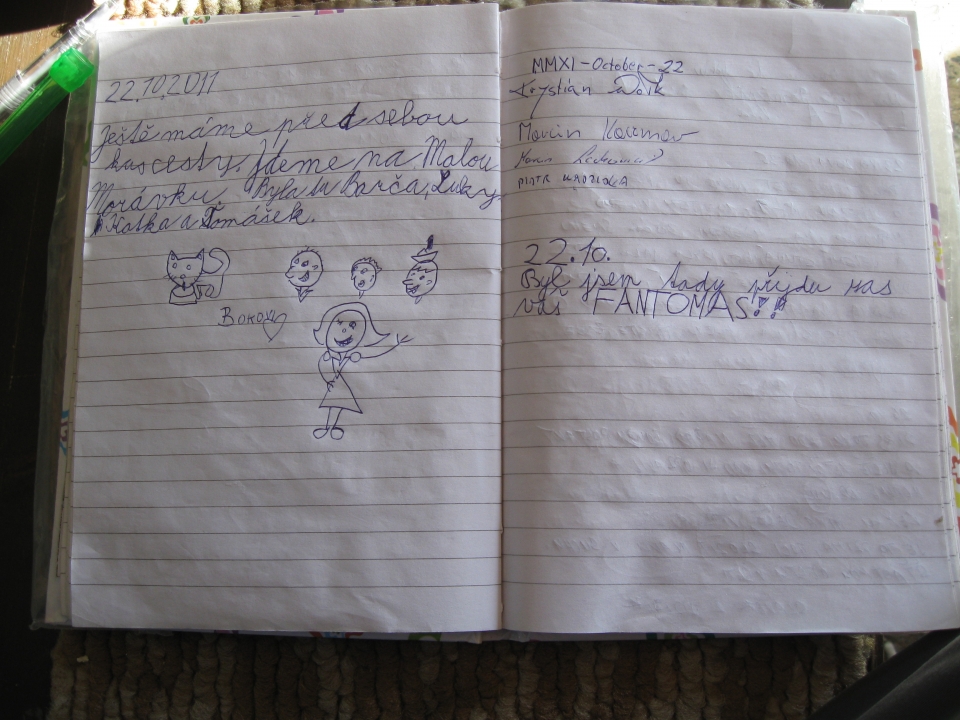 22.10.2011
Ještě máme před sebou
kus cesty. Jdeme na Malou
Morávku. Byla tu Barča, Luky
Katka a Tomášek.
MMXI-October-22
Krystián
Marcin
PIOTR
22.10.
Byl jsem tady přijdu zas
váš FANTOMAS!!